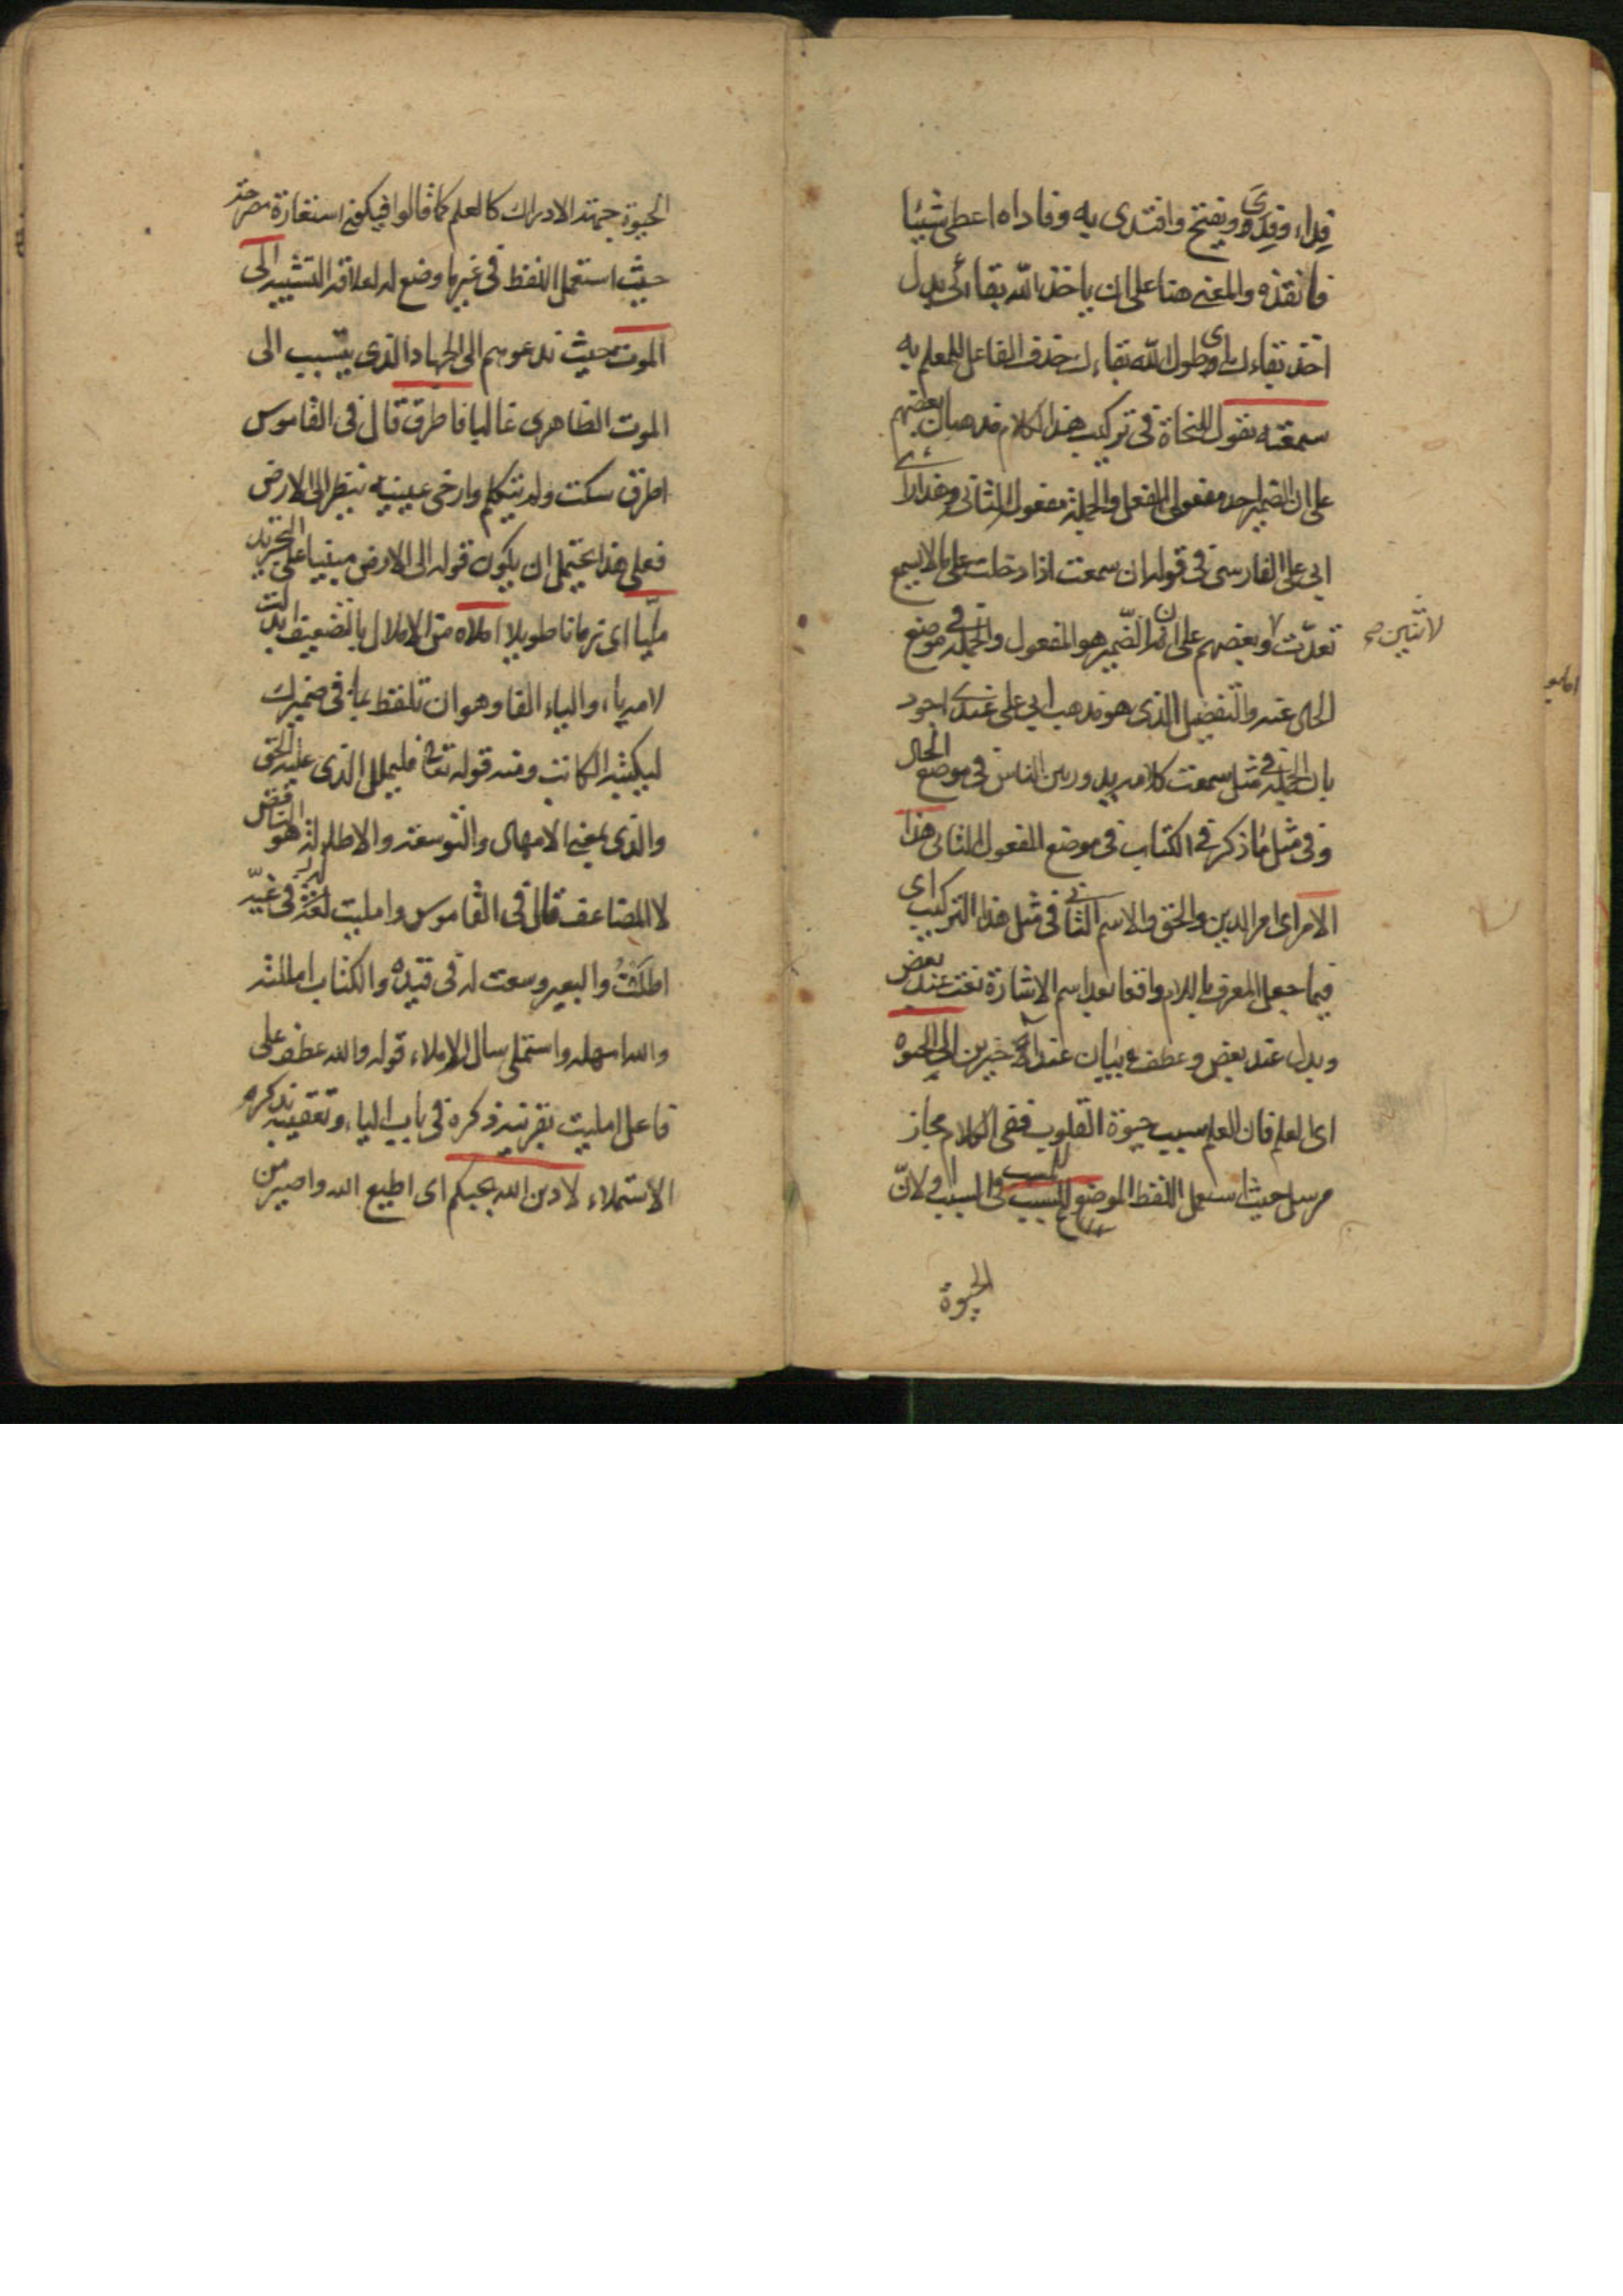 فداء وفِدًى ويفتح وافتدى به وفاداه اعطى شيئا
فانقذه والمعنى هنا على ان ياخذ الله بقائى بدل
اخذ بقاءك وطول الله بقاءك حذف الفاعل للعلم به
سمعته يقول للنحاة فى تركيب هذا الكلام مذهبان بعضهم
على ان الضمير احد مفعولى الفعل والجملة مفعول الثانى وهذا رأى
ابى على الفارسى فى قوله ان سمعت اذا دخلت على ما لا يسمع
تعدّت وبعضهم على ان الضّمير هو المفعول والجملة فى موضع
لاثنين صح
الحال عنه والتفضيل الذى هو مذهب ابى على عندى اجود
بان الجملة فى مثل سمعت كلام زيد ورين الناس فى موضع الحال
وفى مثل ما ذكر فى الكتاب فى موضع المفعول الثانى هذا
الامر اى امر الدين والحق والاسم الثانى فى مثل هذا التركيب اى
فيما جعل المعرف باللام واقعا بعد اسم الاشارة نعت عند بعض
وبدل عند بعض وعطف بيان عند آخرين الى الحيوة
اى لعلم فان العلم سبب حيوة القلوب ففى الكلام مجاز
مرسل حيث استعمل اللفظ الموضوع للمسبب فى السبب او لانّ
الحيوة
الحيوة جهة الادراك كالعلم كما قالوا فيكون استعارة مصرحة
حيث استعمل اللفظ فى غير ما وضع له لعلاقة التشبيه الى
الموت حيث ندعوهم الى الجهاد الذى يتسبب الى
الموت الظاهرى غالبا فاطرق قال فى القاموس
اطرق سكت ولم يتكلم وارخى عينيه ينظر الى الارض
فعلى هذا يحتمل ان يكون قوله الى الارض مبنيا على التجريد
مليّا اى زمانا طويلا املاه من الاملال بالتضعيف ابدلت
لامه ياء والياء الفا وهو ان تلفظ بما فى ضميرك
ليكتبه الكاتب ومنه قوله تعالى فليملل الذى عليه الحق
والذى بمعنى الامهال والتوسعة والاطالة هو الناقص
لا المضاعف قال فى القاموس وامليت له فى غيّه
اطلت والبعير وسعت له فى قيده والكتاب امللته
والله امهله واستملى سال الاملاء قوله والله عطف على
فاعل امليت بقرينة ذكره فى باب الياء وتعقيبه بذكره
الاستملاء لادين الله يجبكم اى اطيع الله واصير من